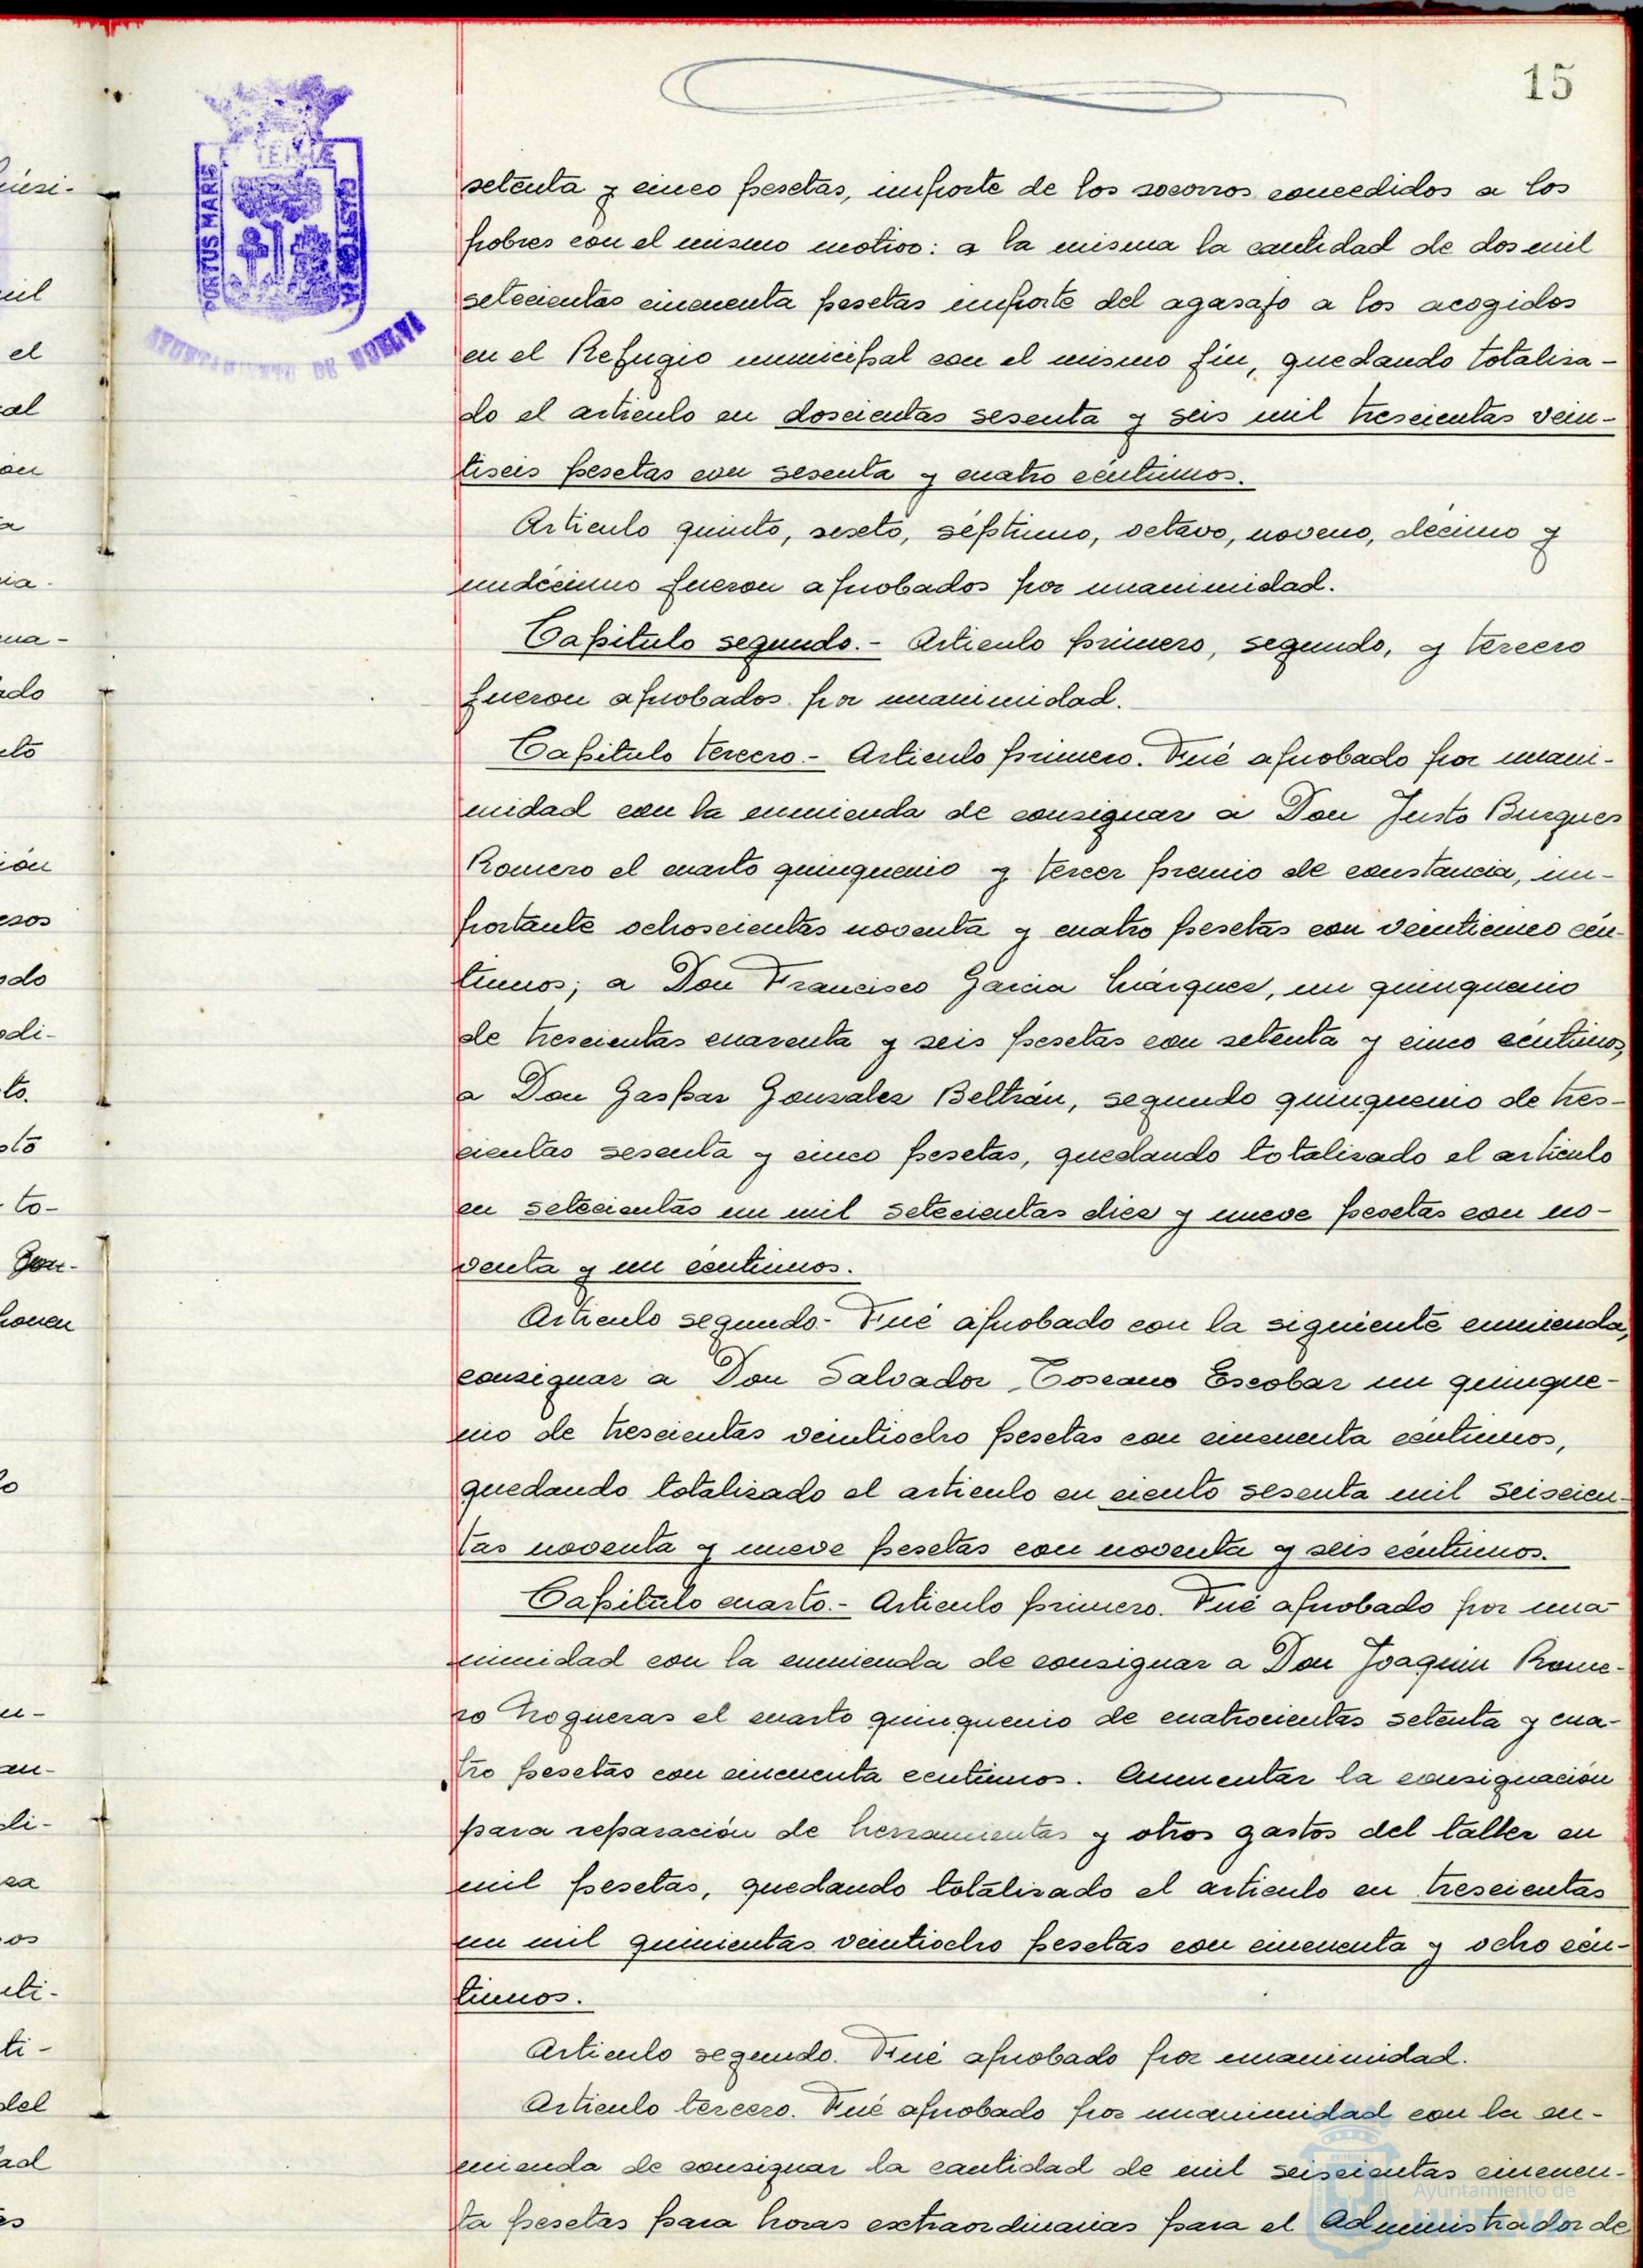 15
setenta y cinco pesetas, importe de los socorros concedidos a los
pobres con el mismo motivo: a la misma la cantidad de dos mil
setecientas cincuenta pesetas importe del agasajo a los acogidos
en el Refugio municipal con el mismo fin, quedando totaliza-
do el articulo en doscientas sesenta y seis mil trescientas vein-
tiseis pesetas con sesenta y cuatro céntimos.
Articulo quinto, sexto, séptimo, octavo, noveno, décimo y
undécimo fueron aprobados por unanimidad.
Capitulo segundo.- Articulo primero, segundo, y tercero
fueron aprobados por unanimidad.
Capitulo tercero.- Articulo primero. Fué aprobado por unani-
midad con la enmienda de consignar a Don Justo Burgues
Romero el cuarto quinquenio y tercer premio de constancia, im-
portante ochoscientas noventa y cuatro pesetas con veinticinco cén-
timos; a Don Francisco Garcia Márquez, un quinquenio
de trescientas cuarenta y seis pesetas con setenta y cinco céntimos,
a Don Gaspar Gonzalez Beltrán, segundo quinquenio de tres-
cientas sesenta y cinco pesetas, quedando totalizado el articulo
en setecientas un mil setecientas diez y nueve pesetas con no-
venta y un céntimos.
Articulo segundo.- Fué aprobado con la siguiente enmienda,
consignar a Don Salvador Toscano Escobar un quinque-
nio de trescientas veintiocho pesetas con cincuenta céntimos,
quedando totalizado el articulo en ciento sesenta mil seiscien-
tas noventa y nueve pesetas con noventa y seis céntimos.
Capitulo cuarto.- Articulo primero. Fué aprobado por una-
nimidad con la enmienda de consignar a Don Joaquin Rome-
ro Nogueras el cuarto quinquenio de cuatrocientas setenta y cua-
tro pesetas con cincuenta centimos. Aumentar la consignación
para reparación de herramientas y otros gastos del taller en
mil pesetas, quedando totalizado el articulo en trescientas
un mil quinientas veintiocho pesetas con cincuenta y ocho cén-
timos.
Articulo segundo. Fué aprobado por unanimidad.
Articulo tercero. Fué aprobado por unanimidad con la en-
mienda de consignar la cantidad de mil seiscientas cincuen-
ta pesetas para horas extraordinarias para el Administrador de
PORTUS MARIS
AYUNTAMIENTO DE HUELVA
Ayuntamiento de
HUELVA